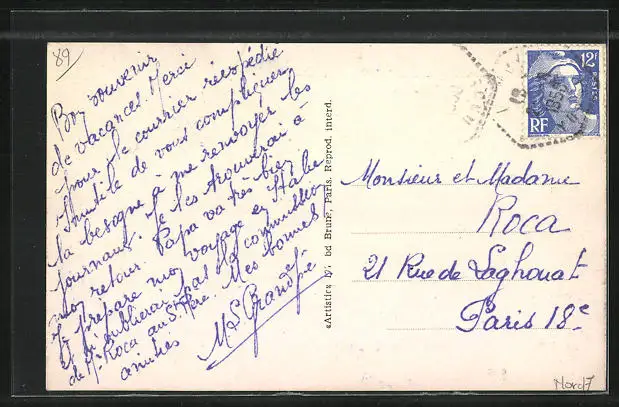 89
Bon souvenir
de vacances. Merci
pour le courrier réexpédié
Inutile de vous compliquer
la besogne à me renvoyer les
journaux. Je les trouverai à
mon retour. Papa va très bien
Je prépare mon voyage en Italie
et n'oublierai pas la commission
de Mr Roca au St Père. Mes bonnes
amitiés
«Artistic», bd Brune, Paris. Reprod. interd.
12F
POSTES
RF
Monsieur et Madame
Roca
21 Rue de Laghouat
Paris 18e
Nord7